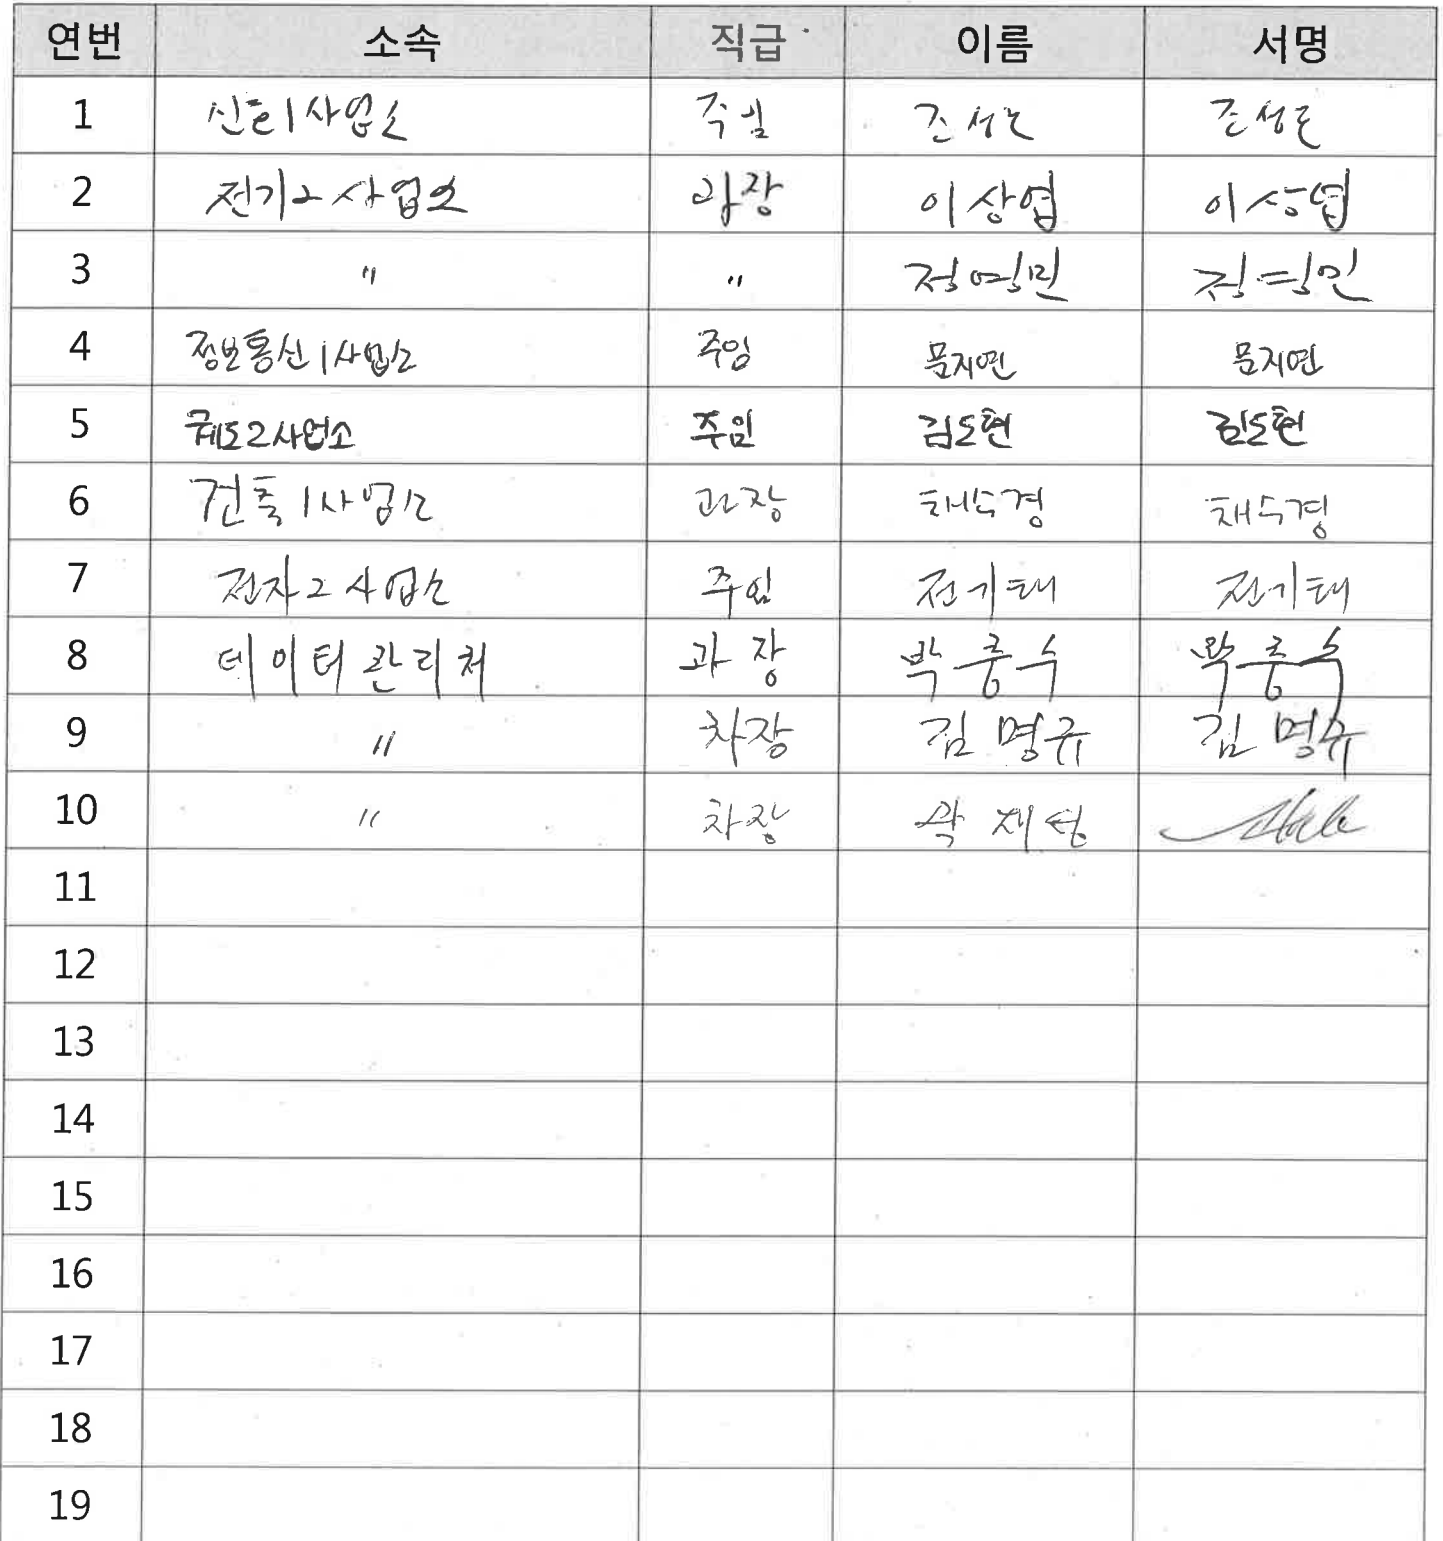 연번 소속 직급 이름 서명
1 신호1사업소 주임
2 전기2사업소 과장 이상엽 이상엽
3 〃 〃 정영민 정영민
4 정보통신1사업소 주임 문지연 문지연
5 궤도2사업소 주임 김도현 김도현
6 건축1사업소 과장 채수경 채수경
7 전자2사업소 주임 전기태 전기태
8 데이터관리처 과장 박중수 박중수
9 〃 차장 김명규 김명규
10 〃 차장
11
12
13
14
15
16
17
18
19